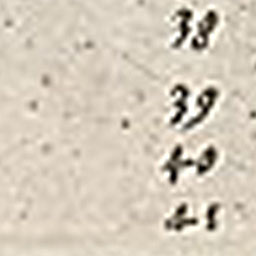 38
39
40
41